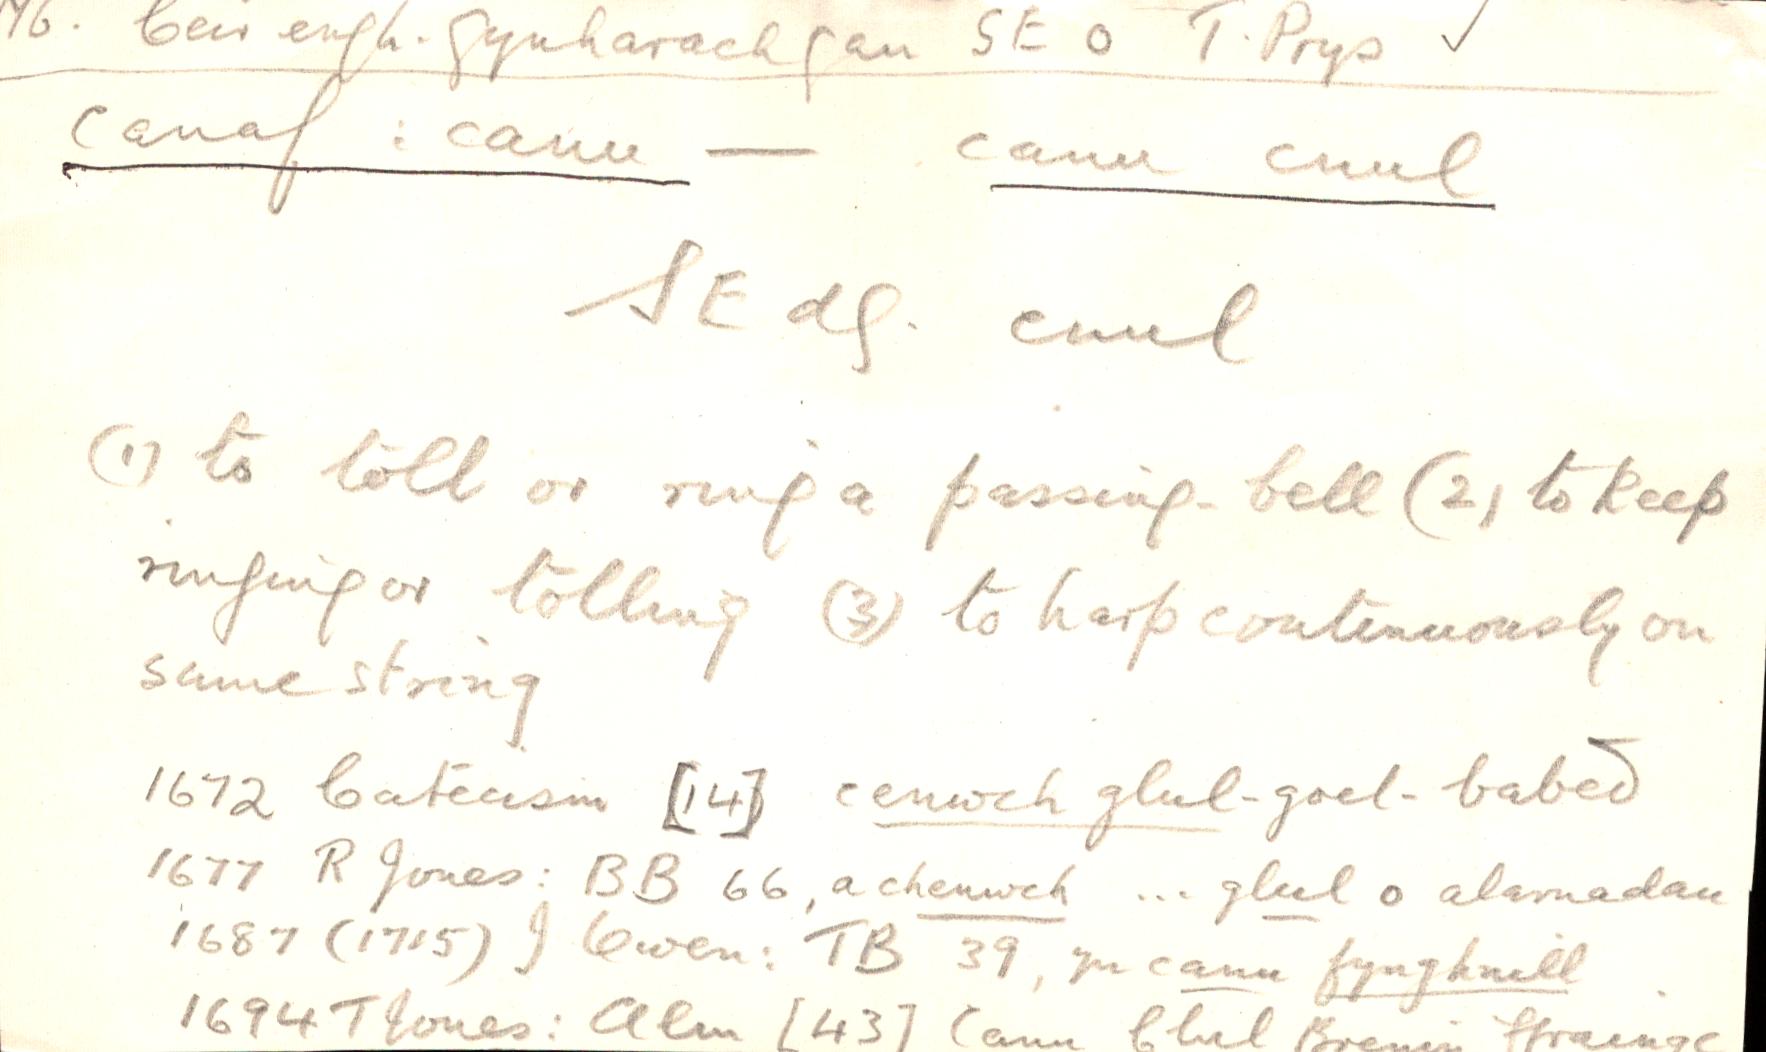 Mb. Ceir engh. gynharach gan SE o T. Prys ✓
canaf : canu — canu cnul
SE dg. cnul
(1) to toll or ring a passing-bell (2) to keep
ringing or tolling (3) to harp continuously on
same string
1672 Catecism [14] cenwch glul-goel-babed
1677 R Jones: BB 66, a chenwch ... glul o alarnadau
1687 (1715) J Owen: TB 39, yn canu fynghnill
1694 T Jones: Alm [43] Canu Clul Brenin Ffrainge